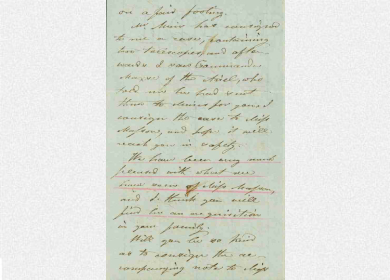 on a fair footing.
Mr. Muir has consigned
to me a case, containing
two Telescopes, and after-
wards I saw Commander
of the Ariel, who
told me he had sent
them to
consign the case to Miss
and hope it will
reach you in safety.
We have been very much
pleased with what we
have seen of Miss
and I think you will
find her an acquisition
in your family.
Will you be so kind
as to consign the ac-
companying note to Miss